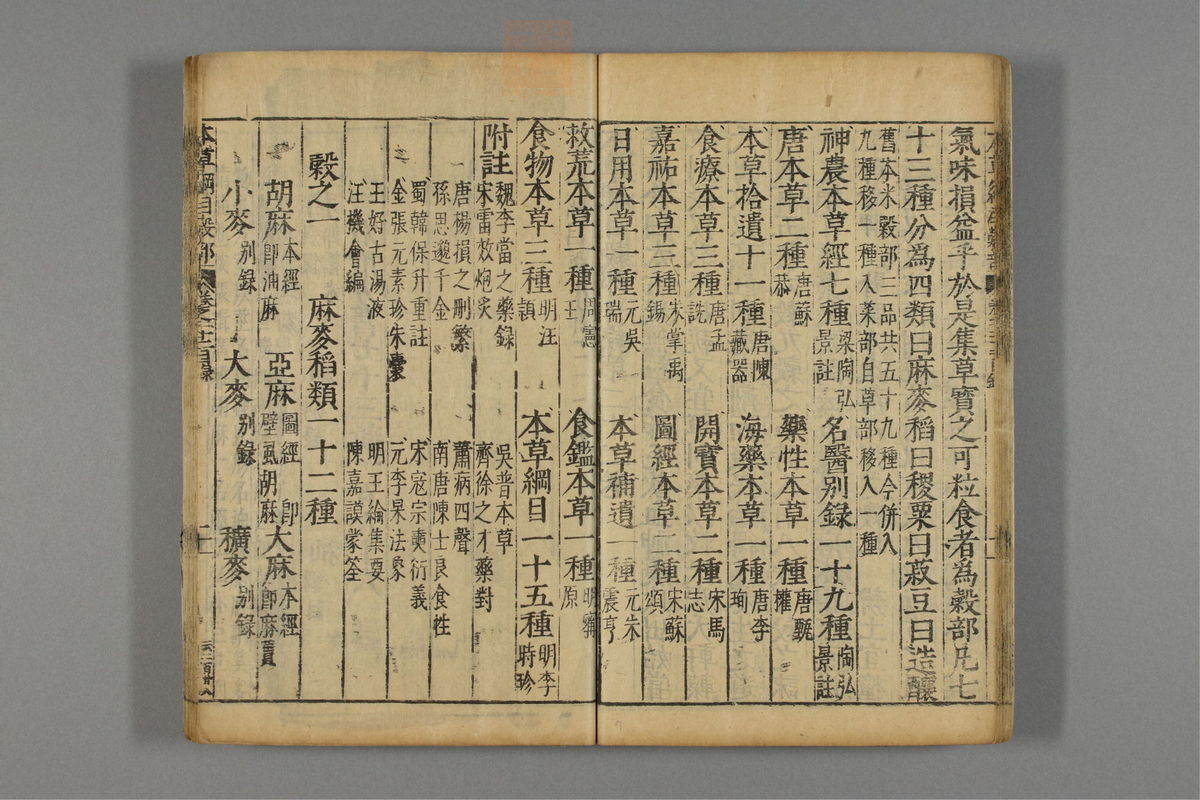 氣味損益乎於是集草實之可粒食者為穀部凡七
十三種分為四類曰麻麥稻曰稷粟曰菽豆曰造釀
舊本米穀部三品共五十九種今併入
九種移一種入菜部自草部移入一種
神農本草經七種梁陶弘景註 名醫別錄一十九種陶弘景註
唐本草二種唐蘇恭 藥性本草一種唐甄權
本草拾遺十一種唐陳藏器 海藥本草一種唐李珣
食療本草三種唐孟詵 開寶本草二種宋馬志
嘉祐本草三種宋掌禹錫 圖經本草二種宋蘇頌
日用本草一種元吳瑞 本草補遺一種元朱震亨
救荒本草一種周憲王 食鑑本草一種明甯原
食物本草三種明汪頴 本草綱目一十五種明李時珍
附註
魏李當之藥錄 吳普本草
宋雷斆炮炙 齊徐之才藥對
唐楊損之刪繁 蕭病四聲
孫思邈千金 南唐陳士良食性
蜀韓保升重註 宋寇宗奭衍義
金張元素珍朱囊 元李杲法象
王好古湯液 明王綸集要
汪機會編 陳嘉謨蒙筌
穀之一 麻麥稻類一十二種
胡麻本經即油麻 亞麻圖經即壁風胡麻 大麻本經即麻蕡
小麥別錄 大麥別錄 穬麥別錄
本草綱目穀部 卷之二十二目錄